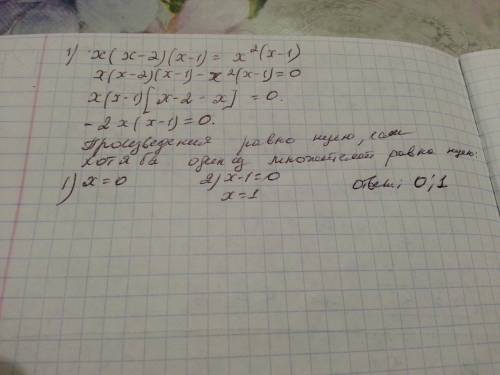 1) x(x-2)(x-1) = x²(x-1)
x(x-2)(x-1) - x²(x-1)=0
x(x-1)[x-2-x] = 0.
-2x(x-1)=0.
Произведения равно нулю, если
хотя ва один из множителей равно нулю.
1) x=0 2) x-1=0 ответ: 0; 1
x=1